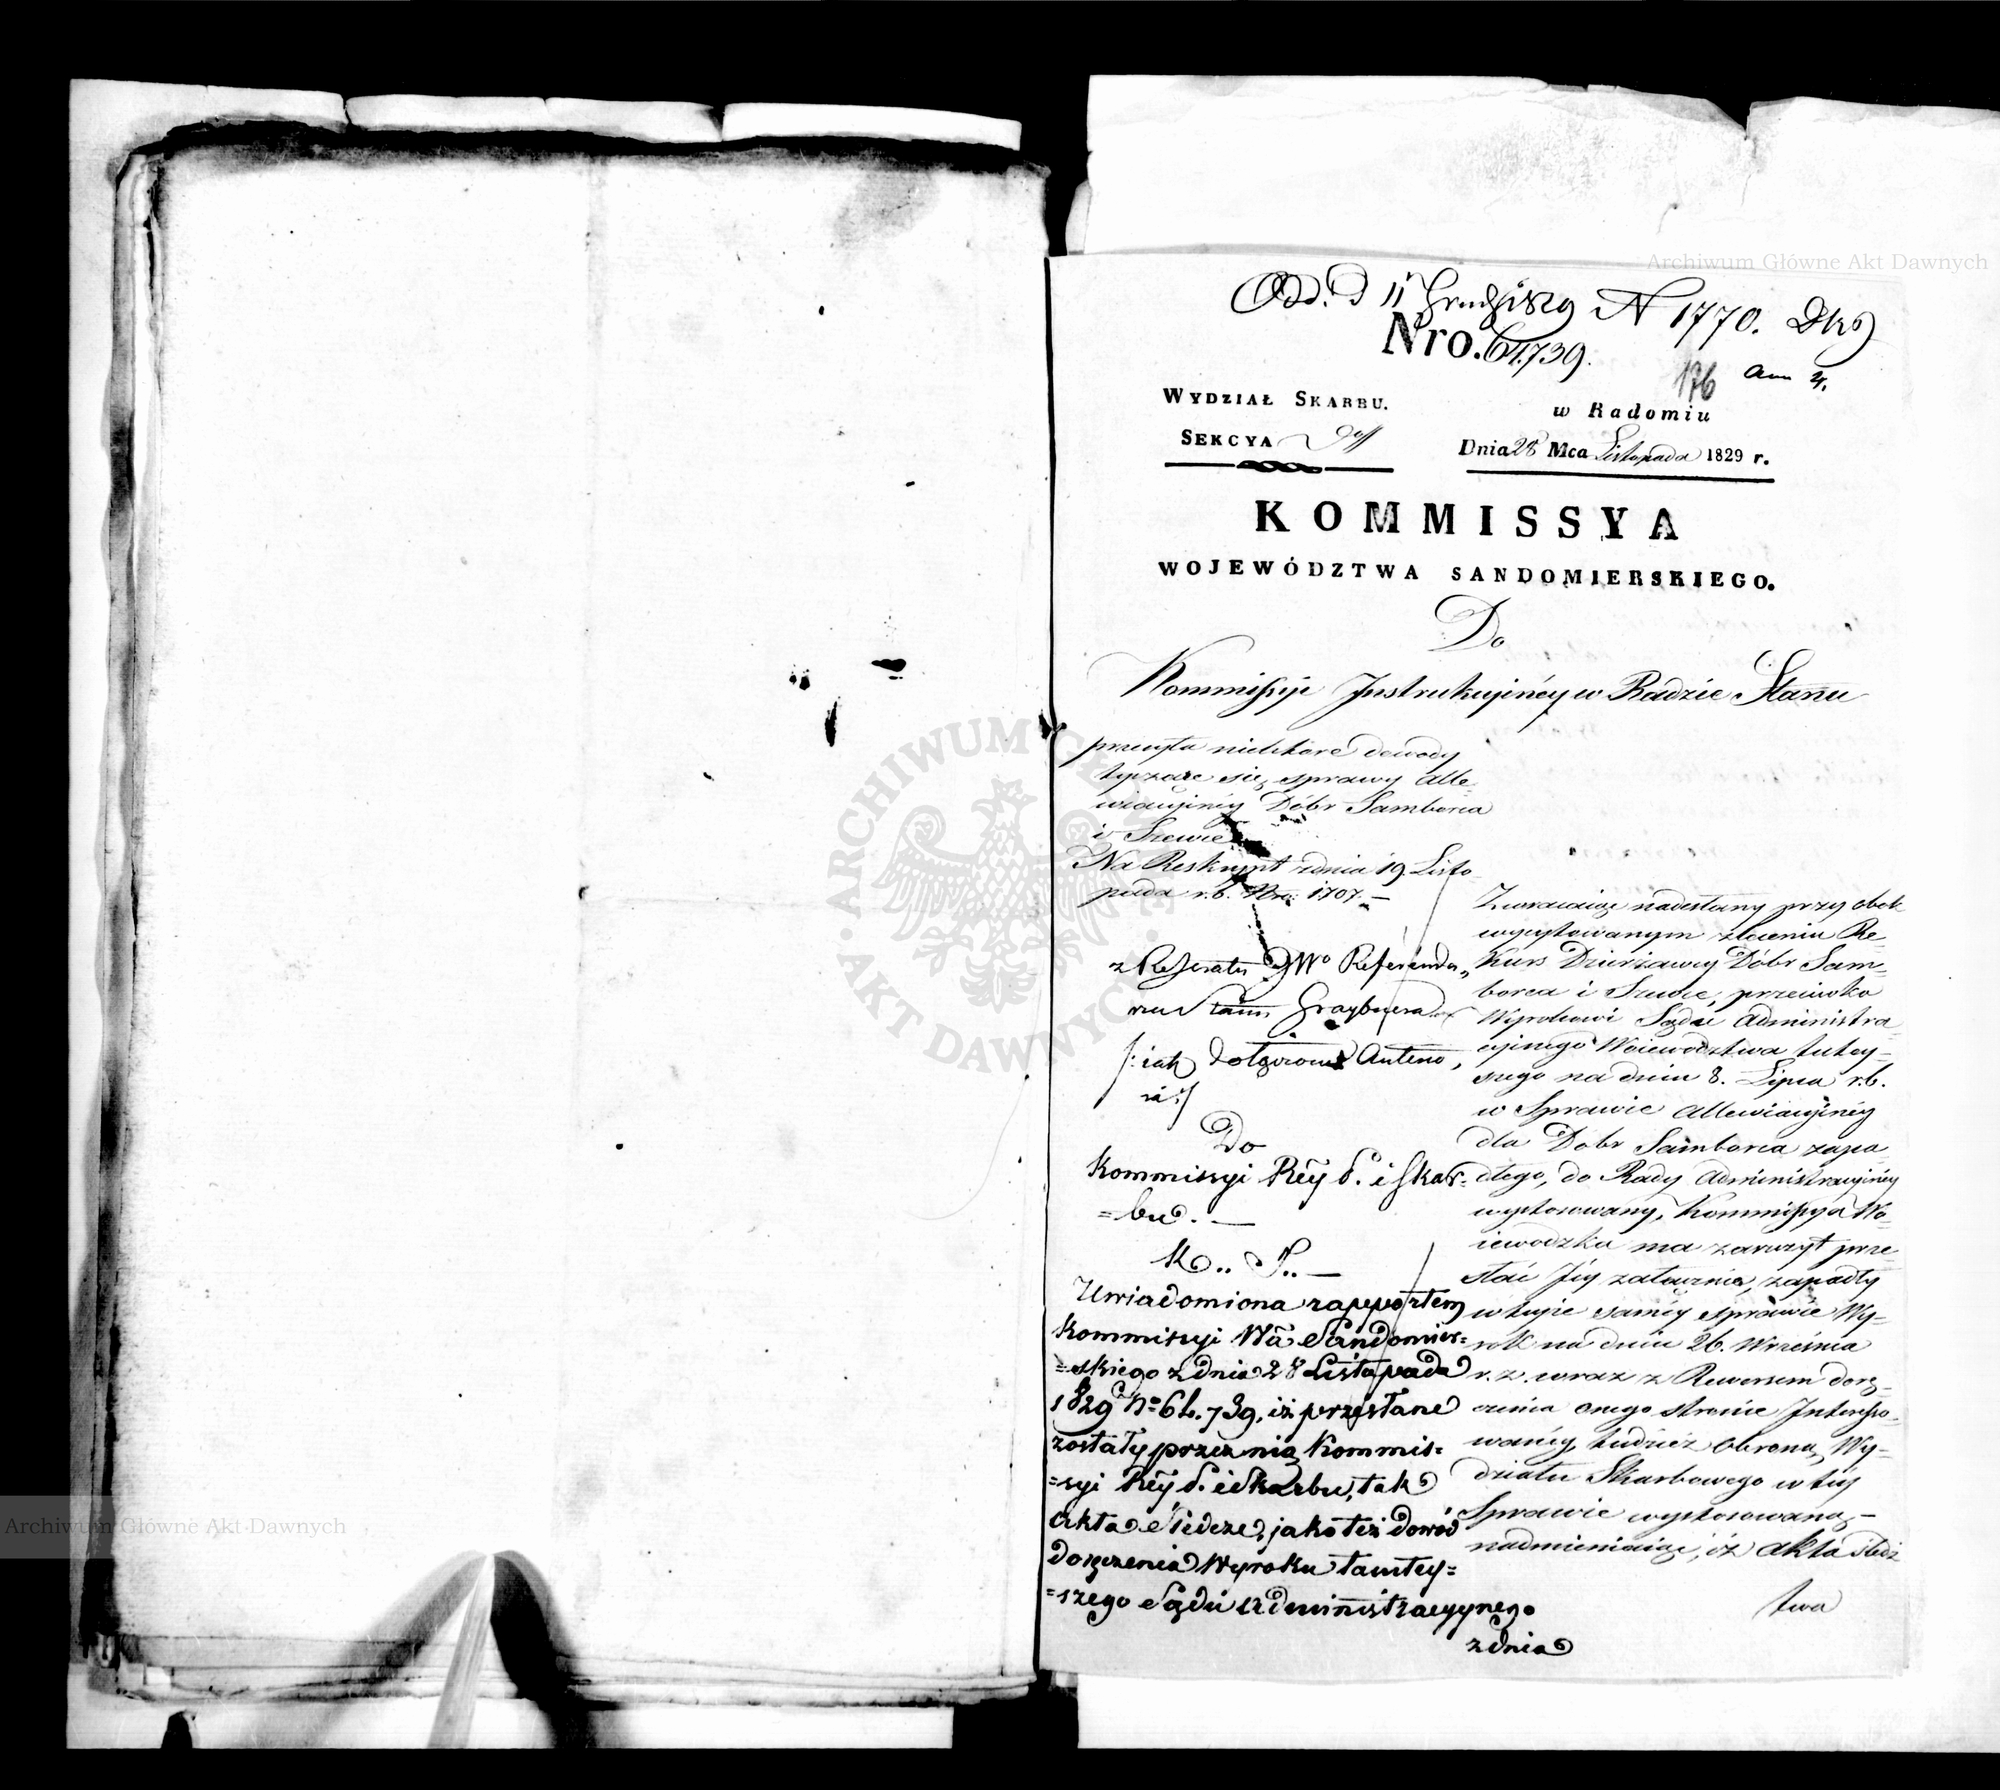 Odd. D 11 Grudz 1829 N 1770. Dks
Nro. 61.739.
176
WYDZIAŁ SKARBU.
w Radomiu
SEKCYA Doff
Dnia 28 Mca Listopada 1829 r.
KOMMISSYA
WOJEWÓDZTWA SANDOMIERSKIEGO.
Do
Kommissyi Instrukcyinéy w Radzie Stanu
przesyła niektóre dowody
tyczące się sprawy Alle-
wiacyinéy Dóbr Samborca
i Szewce
Na Reskrypt z dnia 19. Listo-
pada r.b. Nro. 1707. —
z Referatu JWo Referenda-
rza Stanu Graybnera
/: iak dołączone Anteno,
ria :/
Do
Kommissyi Réy P. i Skar-
=bu. —
K.. I.. —
Uwiadomiona rapportem
Kommissyi Wa Sandomier=
=skiego z dnia 28 Listopada
1829 No 61.739. iż przesłane
zostały przez nią Kommis=
=syi Réy P. i Skarbu, tak
Akta Śledcze, jako też dowód
doręczenia Wyroku tamtey=
=szego Sądu Administracyynego
z dnia
Zwracaiąc nadesłany przy obok
wycytowanym zleceniu Re-
kurs Dzierżawcy Dóbr Sam-
borca i Szewce, przeciwko
Wyrokowi Sądu Administra-
cyjnego Woiewództwa tutey-
szego na dniu 8. Lipca r.b.
w Sprawie Allewiacyinéy
dla Dóbr Samborca zapa-
dłego, do Rady Administracyinéy
wystosowany, Kommissya Wo-
iewodzka ma zaszczyt prze-
słać Jéy załącznie, zapadły
w teyże saméy sprawie Wy-
rok na dniu 26. Września
r. z. wraz z Rewersem dorę-
czenia onego stronie Interesso-
wanéy, tudzież obroną Wy-
działu Skarbowego w téy
Sprawie wystosowaną, -
nadmieniaiąc, iż Akta śledz
twa
Archiwum Główne Akt Dawnych
ARCHIWUM GŁÓWNE AKT DAWNYCH
Archiwum Główne Akt Dawnych